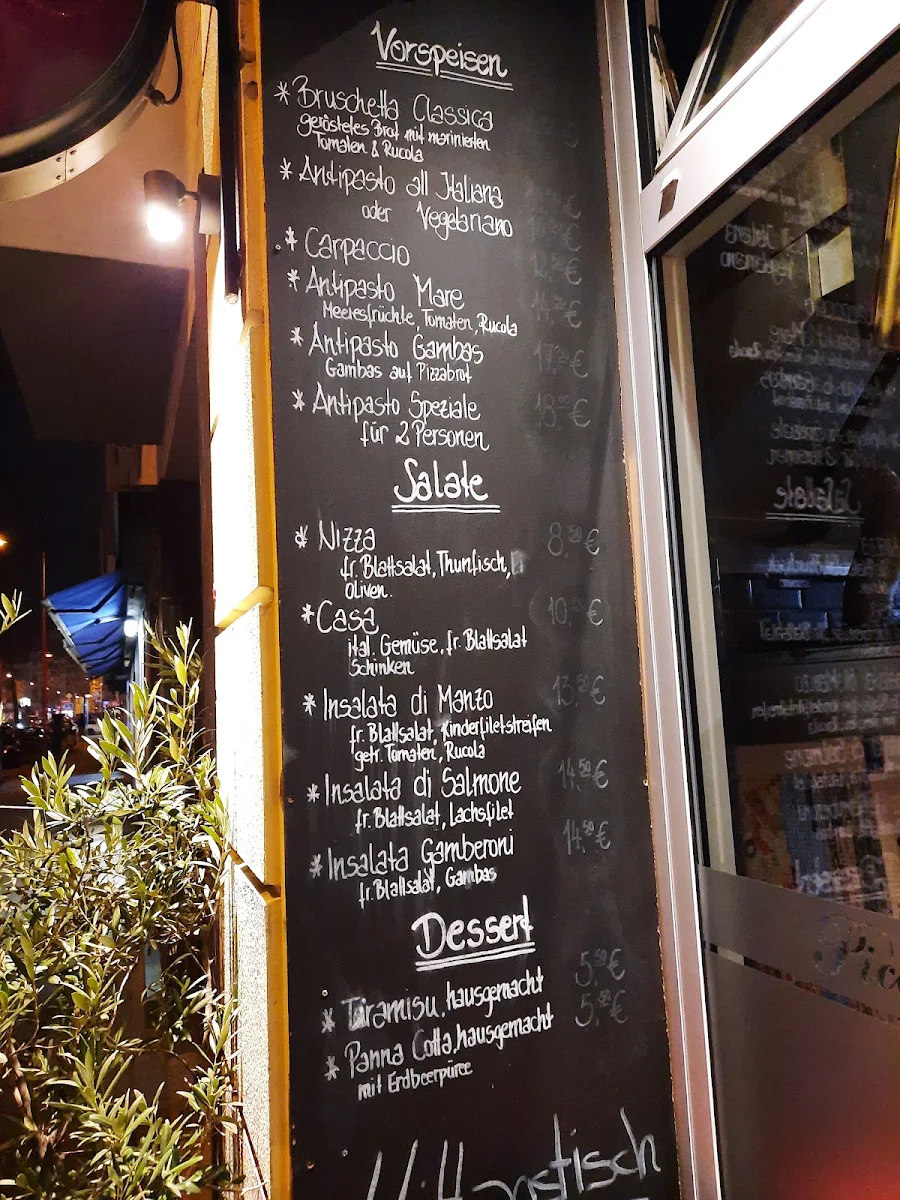 Vorspeisen
* Bruschetta Classica
geröstetes Brot mit marinierten
Tomaten & Rucola
* Antipasto all Italiana
oder Vegetariano
* Carpaccio
* Antipasto Mare
Meeresfrüchte, Tomaten, Rucola
* Antipasto Gambas
Gambas auf Pizzabrot
* Antipasto Speziale
für 2 Personen
Salate
* Nizza 8,50 €
fr. Blattsalat, Thunfisch,
Oliven.
* Casa
ital. Gemüse, fr. Blattsalat
Schinken
* Insalata di Manzo 13,50 €
fr. Blattsalat, Rinderfiletstreifen
getr. Tomaten, Rucola
* Insalata di Salmone 14,50 €
fr. Blattsalat, Lachsfilet
* Insalata Gamberoni 14,50 €
fr. Blattsalat, Gambas
Dessert
* Tiramisu, hausgemacht 5,50 €
* Panna Cotta, hausgemacht 5,50 €
mit Erdbeerpüree
Mittagstisch